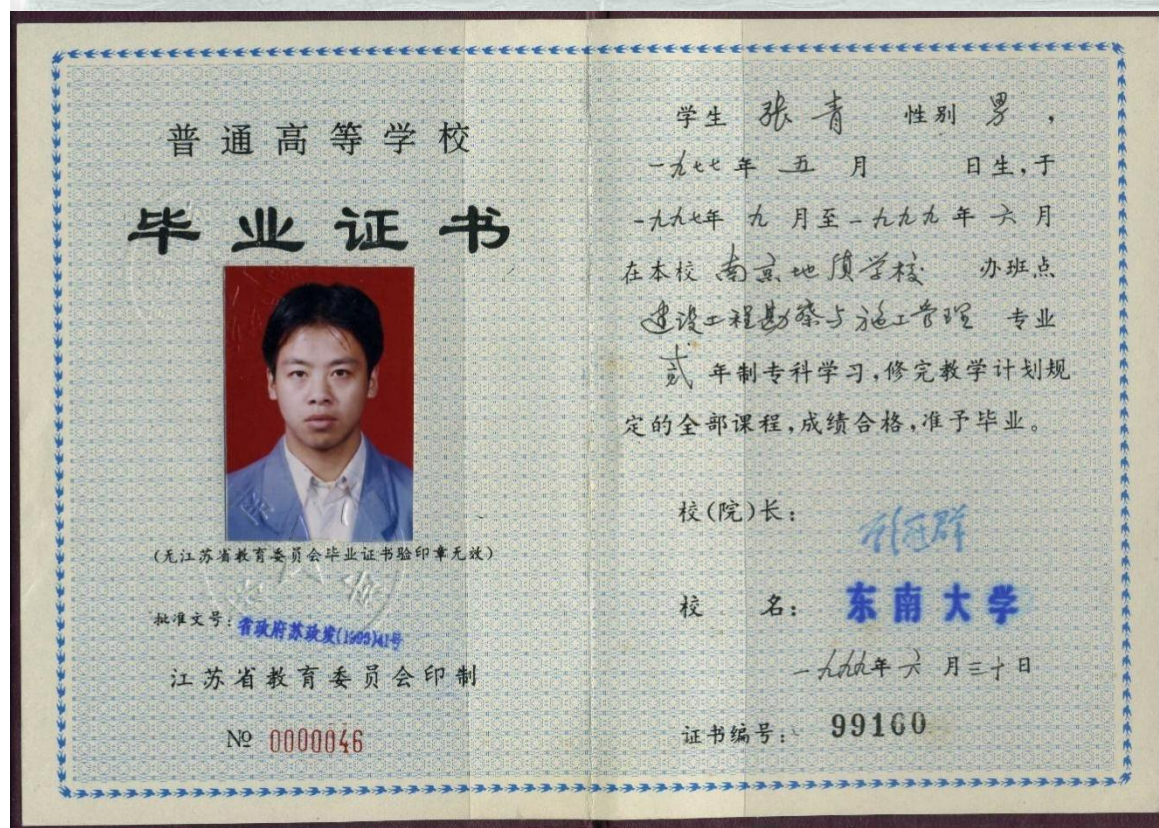 普通高等学校
毕业证书
(无江苏省教育委员会毕业证书验印章无效)
批准文号:省政府苏政发(1993)41号
江苏省教育委员会印制
№ 0000046
学生 张青 性别 男,
一九七七年 五 月 日生,于
一九九七年 九 月至一九九九年 六 月
在本校 南京地质学校 办班点
建设工程勘察与施工管理 专业
弍 年制专科学习,修完教学计划规
定的全部课程,成绩合格,准予毕业。
校(院)长:
校 名: 东南大学
一九九九年 六 月三十日
证书编号: 99160